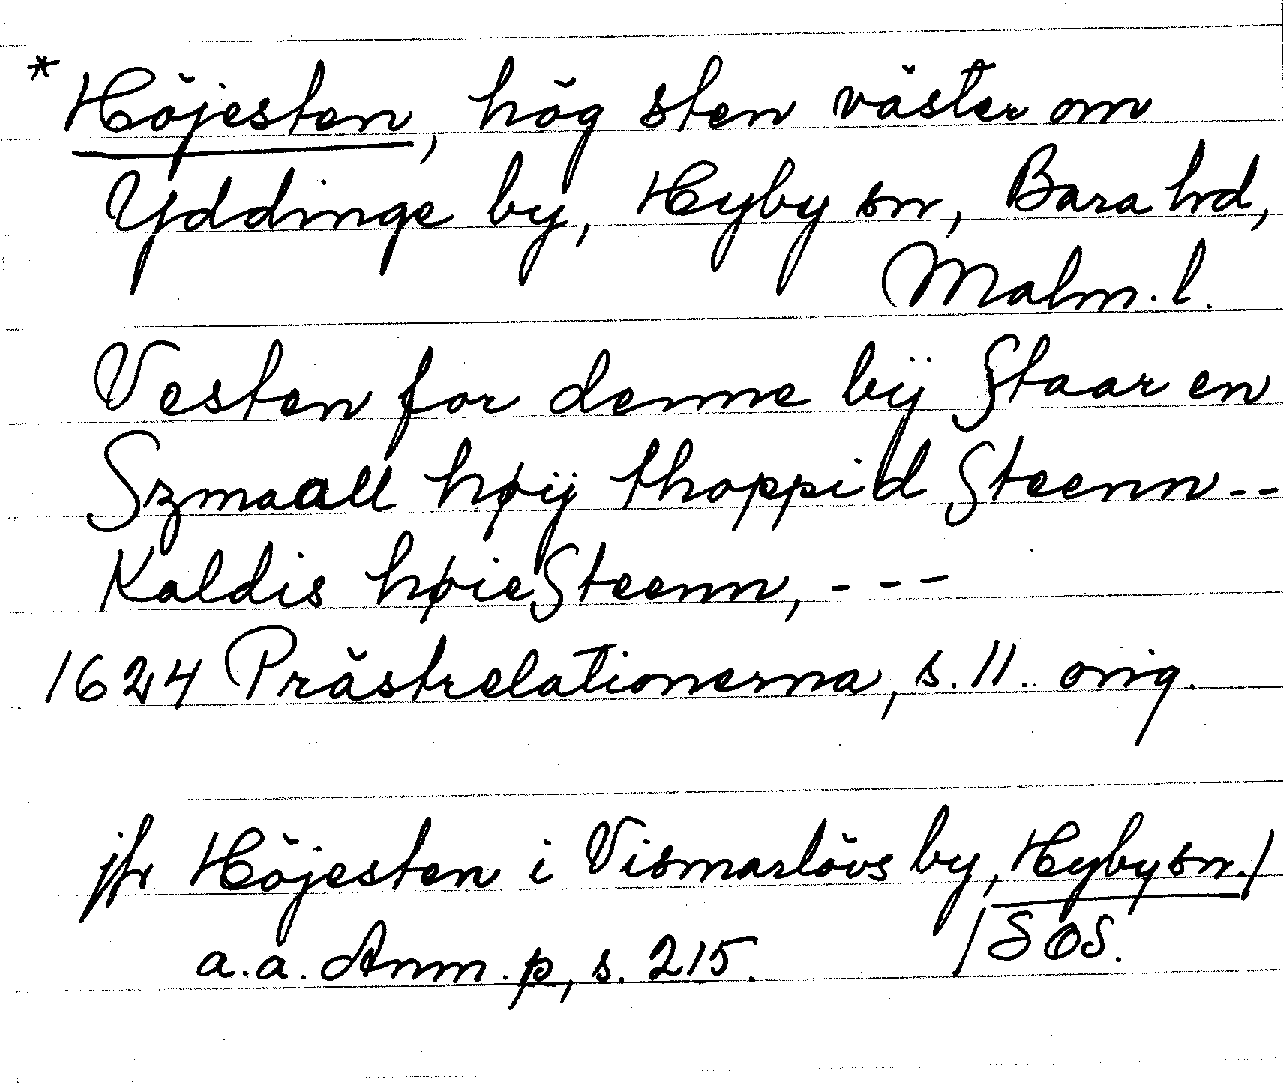 * Höjesten, hög sten väster om
Yddinge by, Hyby sn, Bara hd,
Malm. l.
Vesten for denne bÿ Staar en
Szmaall høÿ thoppid Steenn--
Kaldis høieSteenn, ---
1624 Prästrelationerna, s. 11. orig.
jfr Höjesten i Vismarlövs by, Hyby sn./
a.a. Anm. p, s. 215. /SOS.